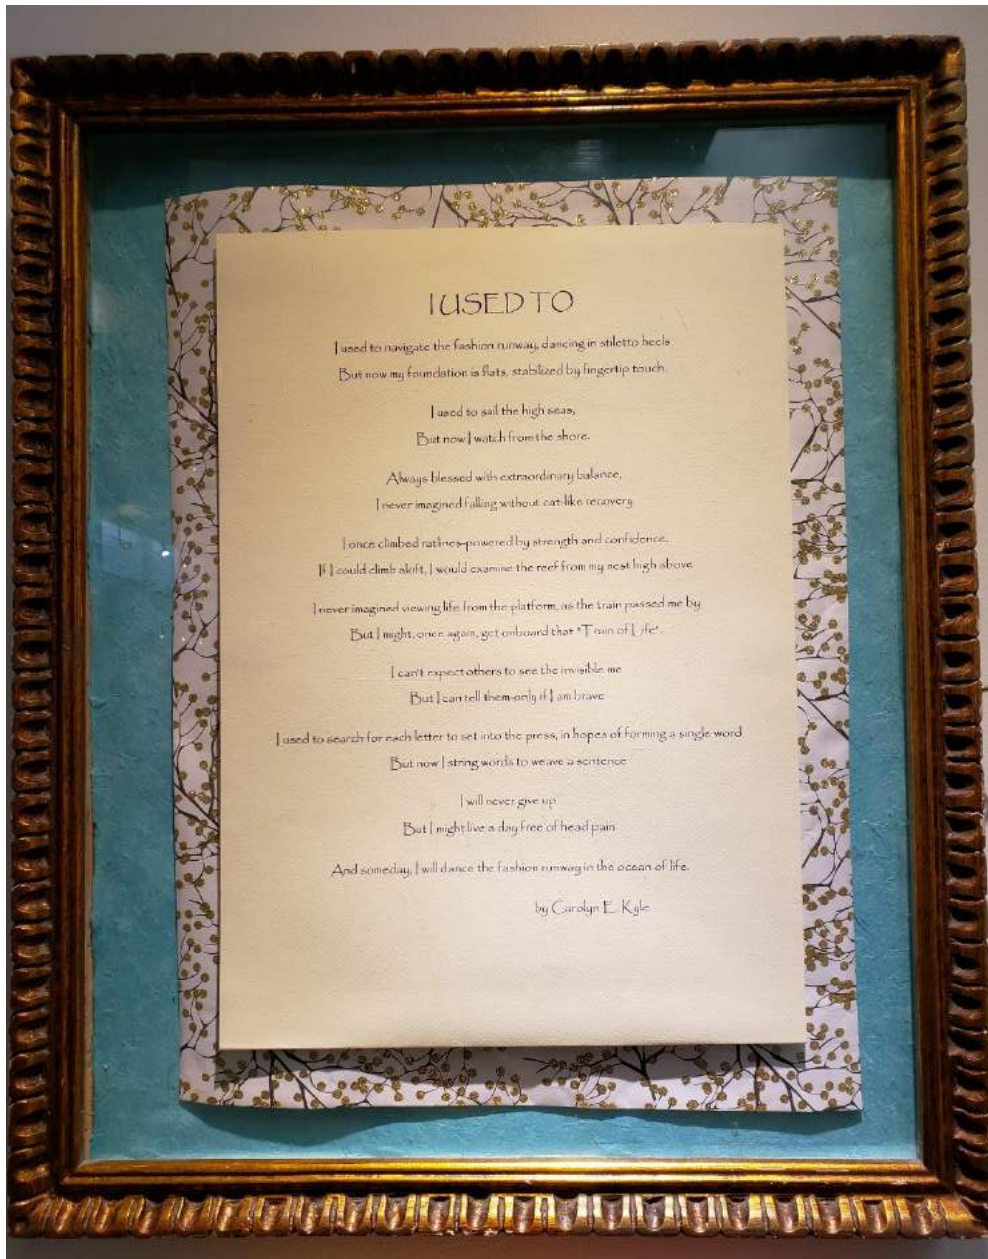 I USED TO
I used to navigate the fashion runway, dancing in stiletto heels
But now my foundation is flats, stabilized by fingertip touch.
I used to sail the high seas,
But now I watch from the shore.
Always blessed with extraordinary balance,
I never imagined falling without cat-like recovery
I once climbed ratlines-powered by strength and confidence.
If I could climb aloft, I would examine the reef from my nest high above
I never imagined viewing life from the platform, as the train passed me by
But I might, once again, get onboard that "Train of Life".
I can't expect others to see the invisible me
But I can tell them-only if I am brave
I used to search for each letter to set into the press, in hopes of forming a single word
But now I string words to weave a sentence
I will never give up
But I might live a day free of head pain
And someday, I will dance the fashion runway in the ocean of life.
by Carolyn E. Kyle